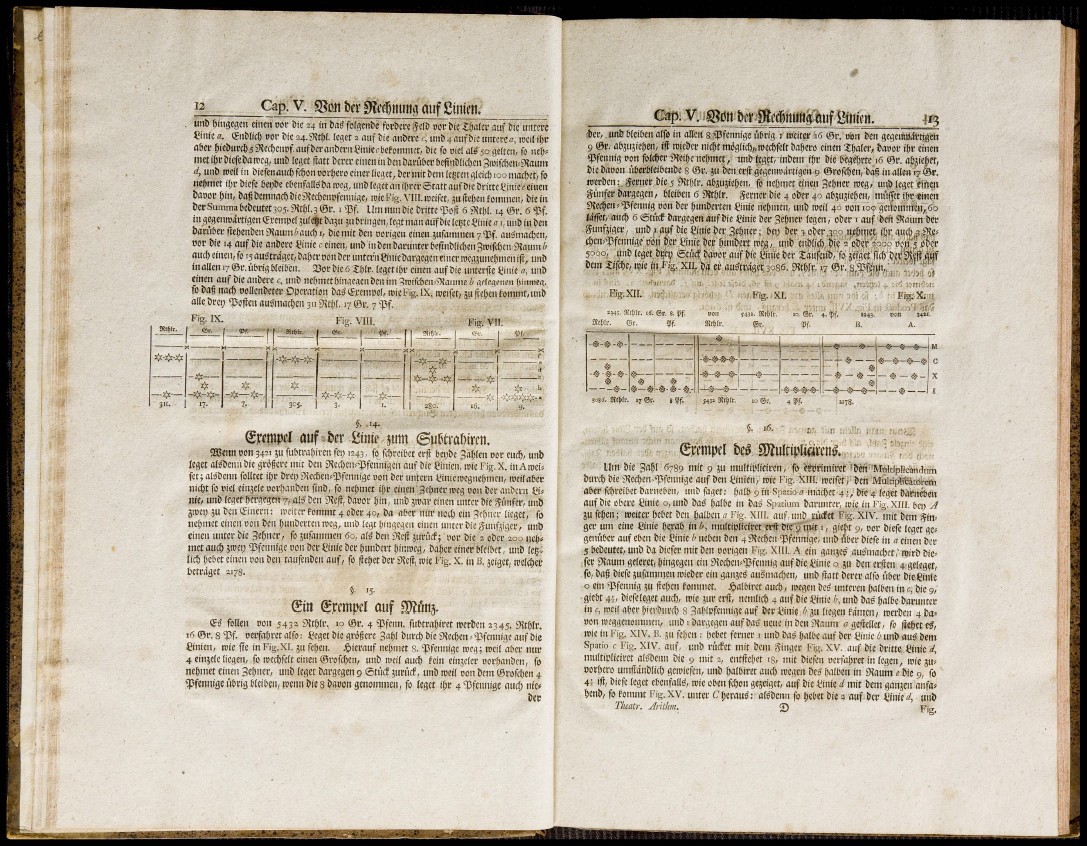 12 Cap. V. Von der Rechnung auf Linien.
und hingegen einen vor die 24 in das folgende fordere Feld vor die Thaler auf die untere
Linie a. Endlich vor die 24. Rthl. leget 2 auf die andere c, und 4 auf die untere a, weil ihr
aber hiedurch 5 Rechenpf. auf der andern Linie c bekommet, die so viel als 50 gelten, so neh-
met ihr diese da weg, und leget statt derer einen in den darüber befindlichen Zwischen-Raum
d, und weil in diesen auch schon vorhero einer lieget, der mit dem letzten gleich 100 machet, so
nehmet ihr diese beyde ebenfalls da weg, und leget an ihrer Statt auf die dritte Linie e einen
davor hin, daß demnach die Rechenpfennige, wie Fig. VIII. weiset, zu stehen kommen, die in
der Summa bedeutet 305. Rthl. 3 Gr. 1 Pf. Um nun die dritte Post 6 Rthl. 14 Gr. 6 Pf.
in gegenwärtigen Exempel zuletzt dazu zu bringen, leget man auf die letzte Linie a 1, und in den
darüber stehenden Raum b auch 1, die mit den vorigen einen zusammen 7 Pf. ausmachen,
vor die 14 auf die andere Linie c einen, und in den darunter befindlichen Zwischen-Raum b
auch einen, so 15 austräget, daher von der untern Linie dargegen einer wegzunehmen ist, und
in allen 17 Gr. übrig bleiben. Vor die 6 Thlr. leget ihr einen auf die unterste Linie a, und
einen auf die andere c, und nehmet hingegen den im Zwischen-Raume b gelegenen hinweg,
so daß nach vollendeter Operation das Exempel, wie Fig. IX. weiset, zu stehen kommt, und
alle drey Posten ausmachen 311 Rthl. 17 Gr. 7 Pf.
Fig. IX. Fig. VIII. Fig. VII.
Rthlr. Gr. Pf. Rthlr. Gr. Pf. Rthlr. Gr. Pf.
311. 17. 7. 305. 3. 1. 280. 16. 9.
§. 14.
Exempel auf der Linie zum Subtrahiren.
Wenn von 3421 zu subtrahiren sey 1243, so schreibet erst beyde Zahlen vor euch, und
leget alsdenn die größere mit den Rechen-Pfennigen auf die Linien, wie Fig. X. in A wei-
set; alsdenn solltet ihr drey Rechen-Pfennige von der untern Linie wegnehmen, weil aber
nicht so viel einzele vorhanden sind, so nehmet ihr einen Zehner weg von der andern Li-
nie, und leget hergegen 7, als den Rest, davor hin, und zwar einen unter die Fünfer, und
zwey zu den Einern: weiter kommt 4 oder 40, da aber nur noch ein Zehner lieget, so
nehmet einen von den hunderten weg, und legt hingegen einen unter die Funfziger, und
einen unter die Zehner, so zusammen 60, als den Rest zurück; vor die 2 oder 200 neh-
met auch zwey Pfennige von der Linie der hundert hinweg, daher einer bleibet, und letz-
lich hebet einen von den tausenden auf, so stehet der Rest, wie Fig. X. in B. zeiget, welcher
beträget 2178.
§. 15.
Ein Exempel auf Münz.
Es sollen von 5432 Rthlr. 10 Gr. 4 Pfenn. subtrahiret werden 2345. Rthlr.
16 Gr. 8 Pf. verfahret also: Leget die größere Zahl durch die Rechen-Pfennige auf die
Linien, wie sie in Fig. XI. zu sehen. Hierauf nehmet 8. Pfennige weg; weil aber nur
4 einzele liegen, so wechselt einen Groschen, und weil auch kein einzeler vorhanden, so
nehmet einen Zehner, und leget dargegen 9 Stück zurück, und weil von dem Groschen 4
Pfennige übrig bleiben, wenn die 8 davon genommen, so leget ihr 4 Pfennige auch nie-
der
Cap. V. Von der Rechnung auf Linien. 13
der, und bleiben also in allen 8 Pfennige übrig; weiter 16 Gr. von den gegenwärtigen
9 Gr. abzuziehen, ist wieder nicht möglich, wechselt dahero einen Thaler, davor ihr einen
Pfennig von solcher Reihe nehmet, und leget, indem ihr die begehrte 16 Gr. abziehet,
die davon überbleibende 8 Gr. zu den erst gegenwärtigen 9 Groschen, daß in allen 17 Gr.
werden: Ferner die 5 Rthlr. abzuziehen, so nehmet einen Zehner weg, und leget einen
Fünfer dargegen, bleiben 6 Rthlr. Ferner die 4 oder 40 abzuziehen, müsset ihr einen
Rechen-Pfennig von der hunderten Linie nehmen, und weil 40 von 100 genommen, 60
lässet, auch 6 Stück dargegen auf die Linie der Zehner legen, oder 1 auf den Raum der
Funfziger, und 1 auf die Linie der Zehner; bey der 3 oder 300 nehmet ihr auch 3 Re-
chen-Pfennige von der Linie der hundert weg, und endlich die 2 oder 2000 von 5 oder
5000, und leget drey Stück davor auf die Linie der Tausend, so zeiget sich der Rest auf
dem Tische, wie in Fig. XII. da er austräget 3086. Rthlr. 17 Gr. 8 Pfenn.
Fig. XII. Fig. XI. Fig. X.
2345. Rthlr. 16. Gr. 8. Pf. von 5432. Rthlr. 10. Gr. 4. Pf. 1243. von 3421.
Rthlr. Gr. Pf. Rthlr. Gr. Pf. B. A.
M
C
X
I
3086. Rthlr. 17 Gr. 8 Pf. 5432 Rthlr. 10 Gr. 4 Pf. 2178.
§. 16.
Exempel des Multiplicirens.
Um die Zahl 6789 mit 9 zu multipliciren, so exprimiret den Multiplicandum
durch die Rechen-Pfennige auf den Linien, wie Fig. XIII. weiset; den Multiplicatorem
aber schreibet darneben, und saget: halb 9 in Spatio a machet 4½, die 4 leget darneben
auf die obere Linie o, und das halbe in das Spatium darunter, wie in Fig. XIII. bey A
zu sehen; weiter hebet den halben a Fig. XIII. auf, und rücket Fig. XIV. mit dem Fin-
ger um eine Linie herab in b, multipliciret erst die 9 mit 1, giebt 9, vor diese leget ge-
genüber auf eben die Linie b neben den 4 Rechen-Pfennige, und über diese in a einen der
5 bedeutet, und da dieser mit den vorigen Fig. XIII. A ein ganzes ausmachet, wird die-
ser Raum geleret, hingegen ein Rechen-Pfennig auf die Linie o zu den ersten 4 geleget,
so, daß diese zusammen wieder ein ganzes ausmachen, und statt derer also über die Linie
o ein Pfennig zu stehen kommet. Halbiret auch, wegen des unteren halben in c, die 9,
giebt 4½, diese leget auch, wie zur erst, nemlich 4 auf die Linie b, und das halbe darunter
in c, weil aber hierdurch 8 Zahlpfennige auf der Linie b zu liegen kämen, werden 4 da-
von weggenommen, und 1 dargegen auf das neue in den Raum a gestellet, so stehet es,
wie in Fig. XIV. B. zu sehen: hebet ferner 1 und das halbe auf der Linie b und aus dem
Spatio c Fig. XIV. auf, und rücket mit dem Finger Fig. XV. auf die dritte Linie d,
multipliciret alsdenn die 9 mit 2, entstehet 18, mit diesen verfahret in legen, wie zu-
vorhero umständlich gewiesen, und halbiret auch wegen des halben in Raum e die 9, so
4½ ist, diese leget ebenfalls, wie oben schon gezeiget, auf die Linie d mit dem ganzen anfa-
hend, so kommt Fig. XV. unter C heraus: alsdenn so hebet die 2 auf der Linie d, und
Theatr. Arithm. D Fig.